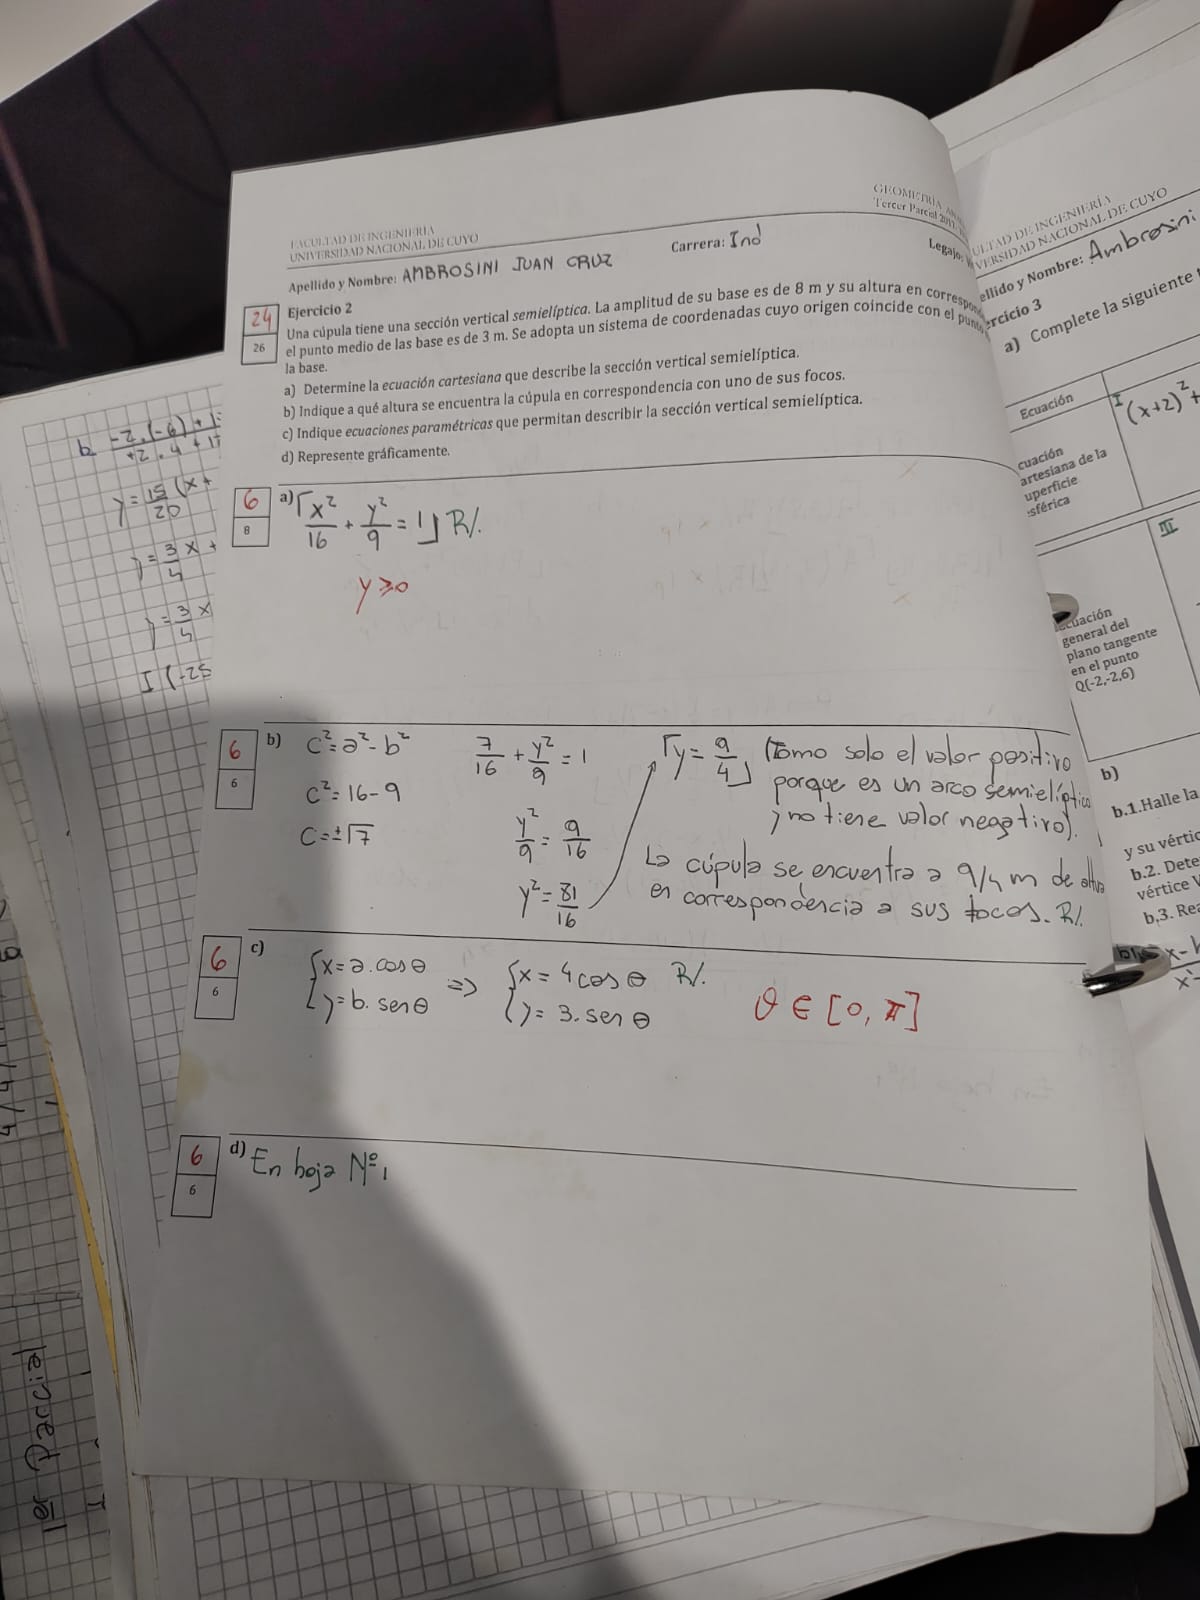 FACULTAD DE INGENIERÍA
UNIVERSIDAD NACIONAL DE CUYO
GEOMETRÍA
Tercer Parcial
Apellido y Nombre: AMBROSINI JUAN CRUZ
Carrera: Ind
Legajo:
24
26
Ejercicio 2
Una cúpula tiene una sección vertical semielíptica. La amplitud de su base es de 8 m y su altura en
el punto medio de las base es de 3 m. Se adopta un sistema de coordenadas cuyo origen coincide con el
la base.
a) Determine la ecuación cartesiana que describe la sección vertical semielíptica.
b) Indique a qué altura se encuentra la cúpula en correspondencia con uno de sus focos.
c) Indique ecuaciones paramétricas que permitan describir la sección vertical semielíptica.
d) Represente gráficamente.
6
8
a) x²/16 + y²/9 = 1 R/.
y ≥ 0
6
6
b) c² = a² - b²
c² = 16 - 9
c = ±√7
7/16 + y²/9 = 1
y²/9 = 9/16
y² = 81/16
y = 9/4 (Tomo solo el valor positivo
porque es un arco semielíptico
y no tiene valor negativo).
La cúpula se encuentra a 9/4 m de altura
en correspondencia a sus focos. R/.
6
6
c) { x = a. cos θ
y = b. sen θ
=> { x = 4 cos θ R/.
y = 3. sen θ
θ ∈ [0, π]
6
6
d) En hoja Nº1
1er Parcial
y = 15/20 (x +
y = 3/4 x +
y = 3/4 x
I (-25
UNIVERSIDAD NACIONAL DE CUYO
Nombre: Ambrosini
a) Complete la siguiente
Ecuación
I (x+2)² +
III
general del
plano tangente
en el punto
Q(-2,-2,6)
b)
b.1. Halle la
y su
b.2.
vértice
b.3.